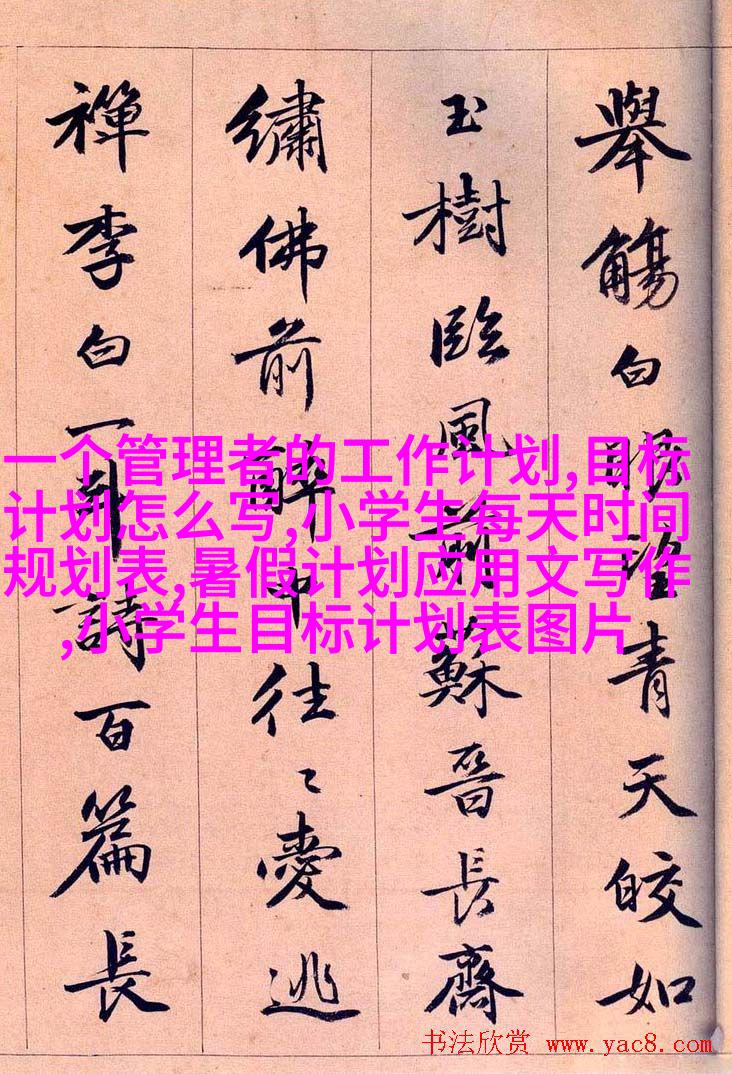 舉觴白眼望青天皎如
玉樹臨風前蘇晉長齋
繡佛前醉中往〻愛逃
禪李白一斗詩百篇長
一个管理者的工作计划,目标
计划怎么写,小学生每天时间
规划表,暑假计划应用文写作
,小学生目标计划表图片
书法欣赏 www.yac8.com